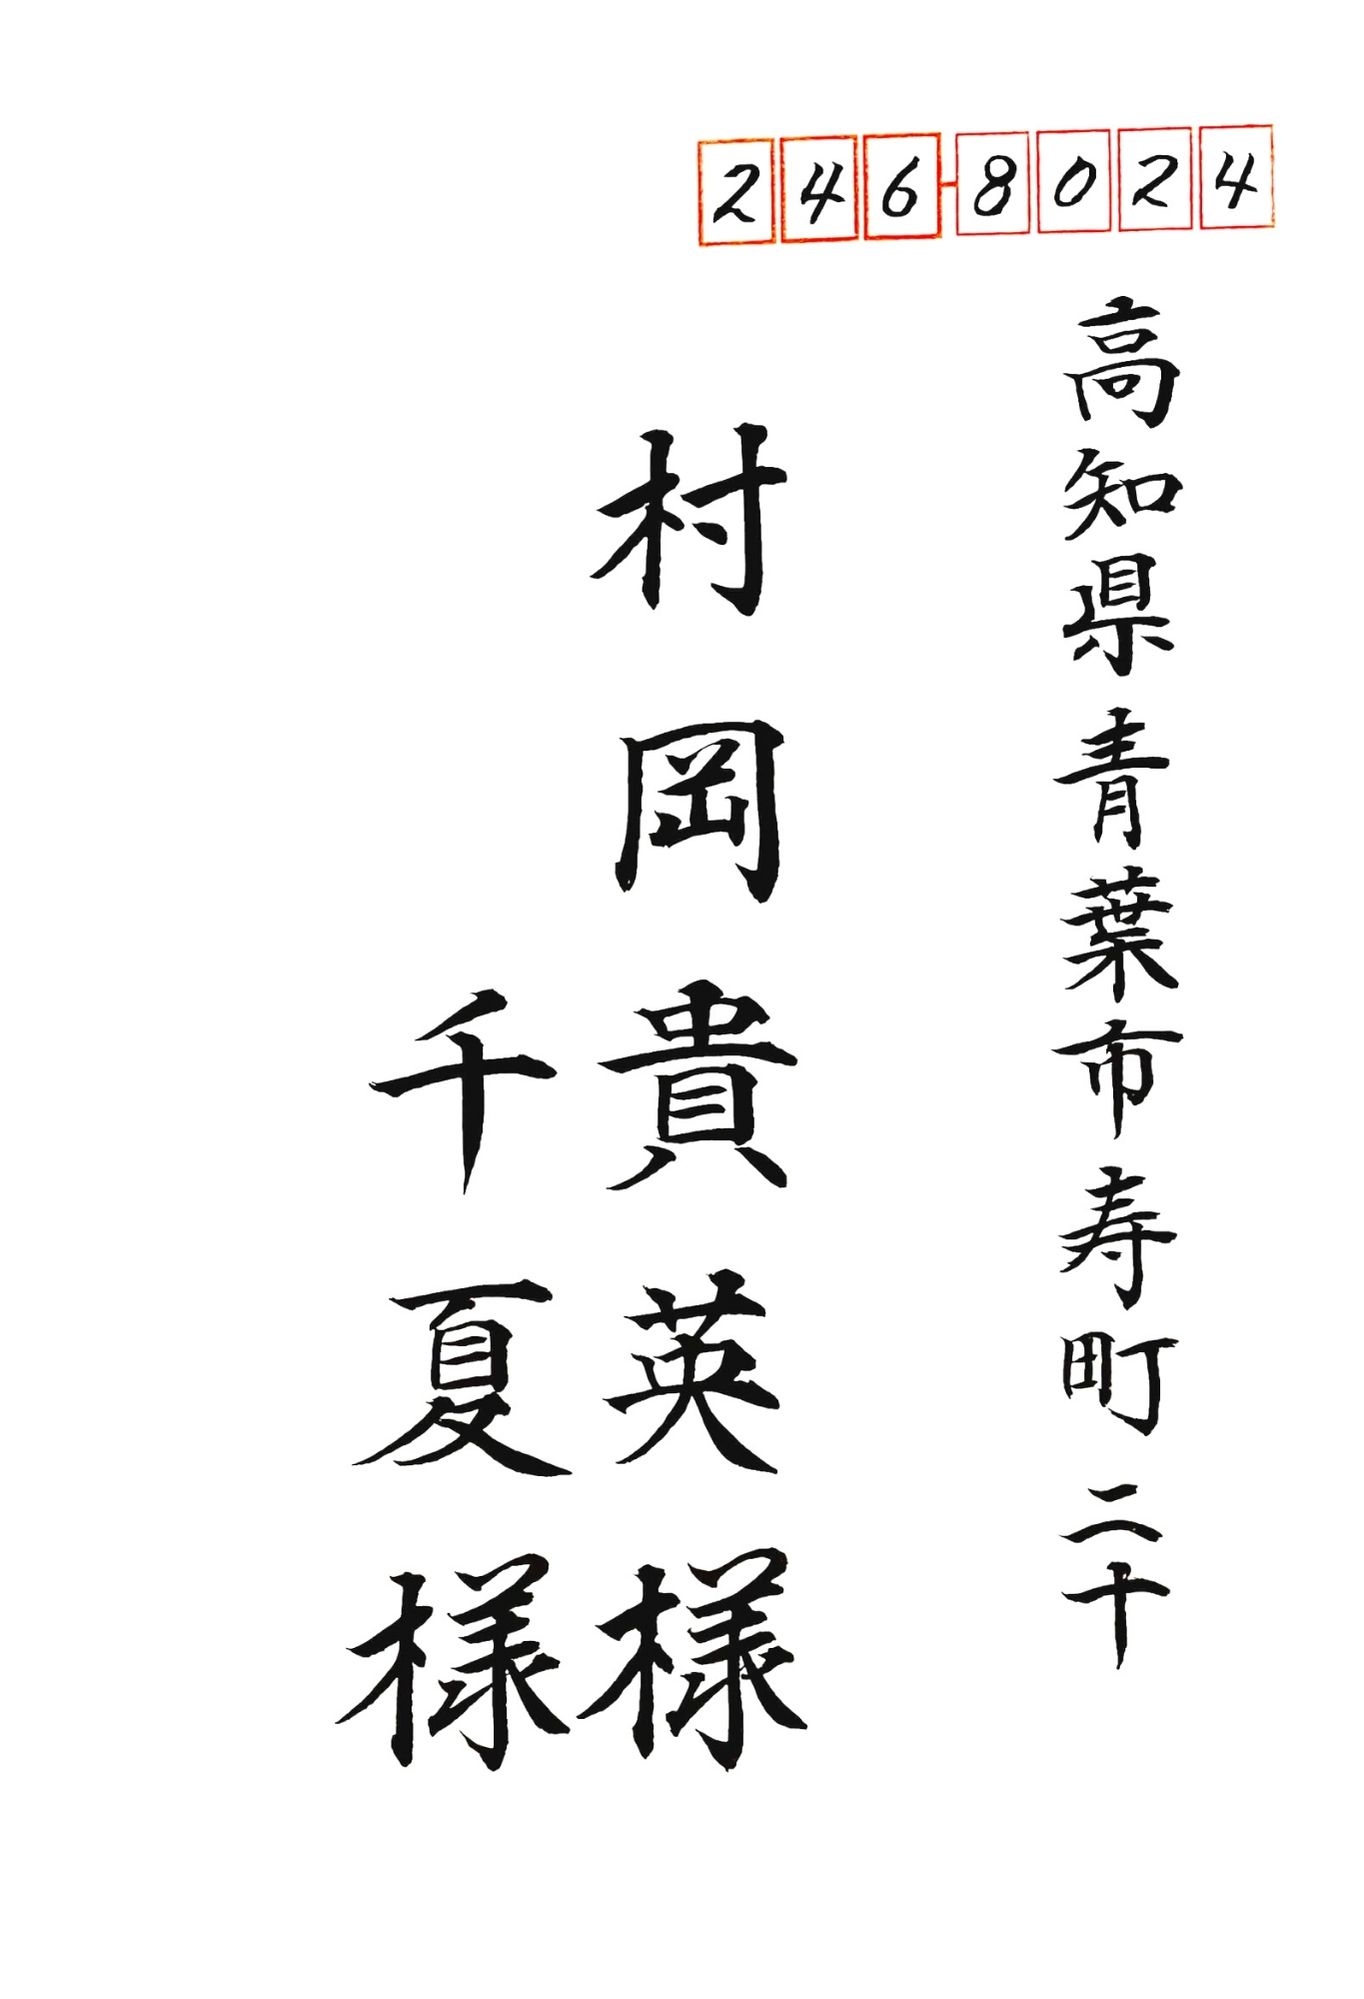 246-8024
高知県青葉市寿町二十
村岡貴英様
千夏様